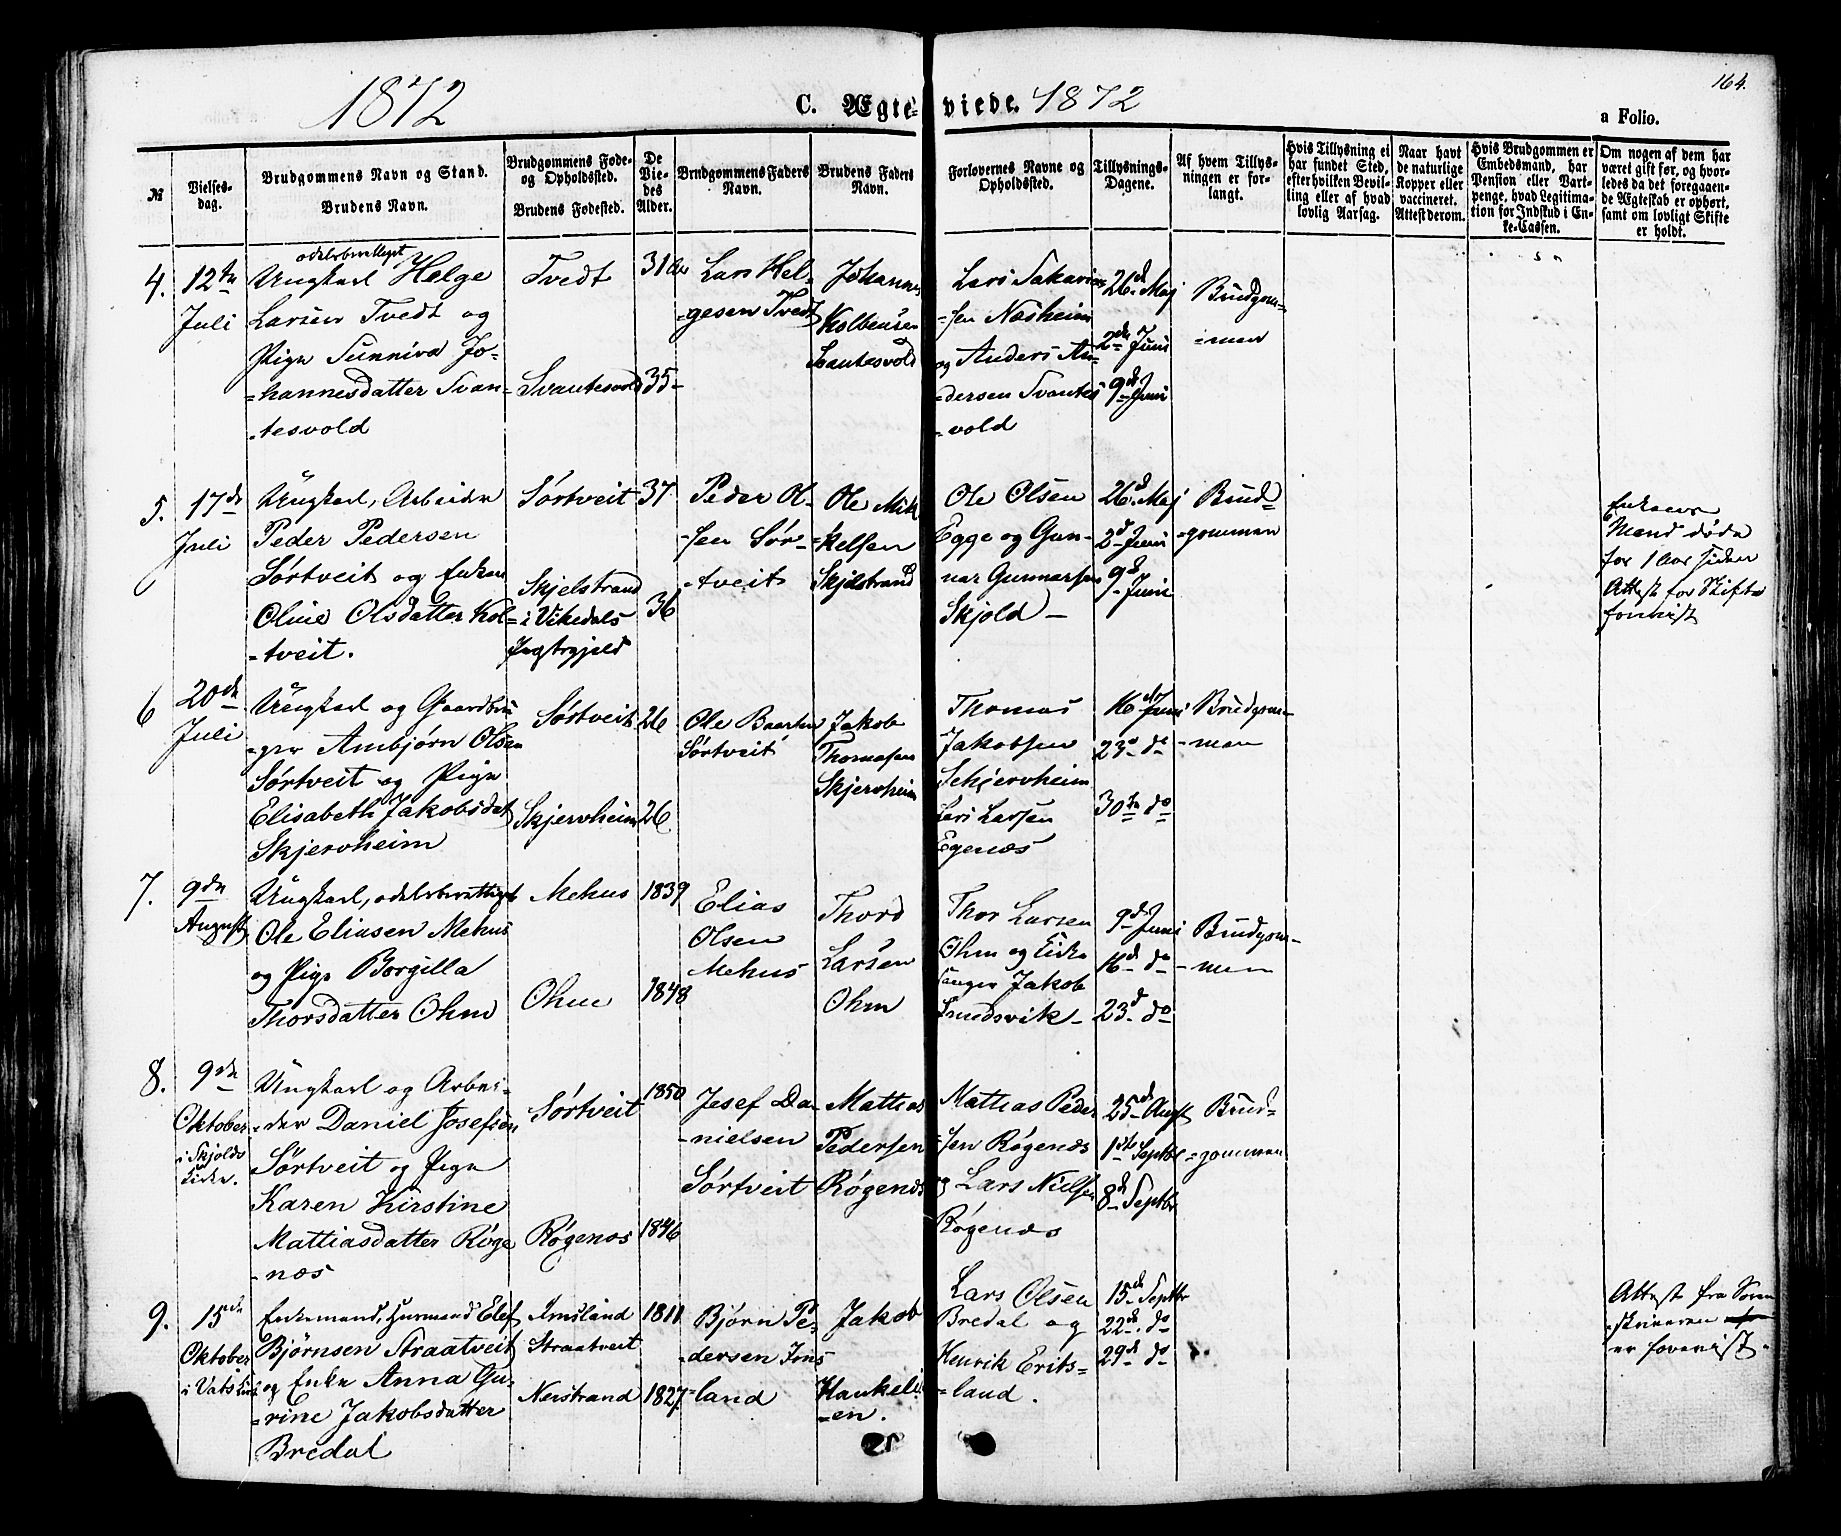 164.
1872
C. Ægte-viede. 1872
a Folio.
№
Vielses-
dag.
Brudgommens Navn og Stand.
Brudens Navn.
Brudgommens Føde-
og Opholdssted.
Brudens Fødested.
De
Vie-
des
Alder.
Brudgommens Faders
Navn.
Brudens Faders
Navn.
Forlovernes Navne og
Opholdssted.
Tillysnings-
Dagene.
Af hvem Tillys-
ningen er for-
langt.
Hvis Tillysning ei
har fundet Sted,
efter hvilken Bevil-
ling eller af hvad
lovlig Aarsag.
Naar havt
de naturlige
Kopper eller
vaccineret.
Attest derom.
Hvis Brudgommen er
Embedsmand, har
Pension eller Vart-
penge, hvad Legitima-
tion for Indskud i En-
ke-Cassen.
Om nogen af dem har
været gift før, og hvor-
ledes da det foregaaen-
de Ægteskab er ophørt,
samt om lovligt Skifte
er holdt.
4.
12te
Juli
odelsberettiget
Ungkarl Helge
Larsen Tvedt og
Pige Sunniva Jo-
-hannesdatter Svan-
-tesvold
Tvedt
Svantesvold
31
35-
Lars Hel-
-gesen Tvedt
Johannes
Kolbensen
Svantesvold
Lars Sakarias
-sen Næsheim
og Anders An-
-dersen Svantes
-vold
26d Maj
2den Juni
9d Juni
Brudgom-
-men
5.
17de
Juli
Ungkarl, Arbeider
Peder Pedersen
Sørtveit og Enken
Oline Olsdatter Kol-
-tveit.
Sørtveit
Skjelstrand
i Vikedals
Præstegjeld
37
36
Peder Ol-
-sen Sør-
-tveit
Ole Mik
-kelsen
Skjelstrand
Ole Olsen
Egge og Gun-
nar Gunnarsen
Skjold -
26d Maj
2d Juni
9d Juni
Brud-
-gommen
Enkens
Mand døde
for 1 Aar siden
Attest for Skifte
forevist
6
20de
Juli
Ungkarl og Gaardbru
-ger Ambjørn Olsen
Sørtveit og Pige
Elisabeth Jakobsdat
Skjervheim
Sørtveit
Skjervheim
26
26
Ole Baarsen
Sørtveit
Jakob
Thomasen
Skjervheim
Thomas
Jakobsen
Schjervheim
Lars Larsen
Egenæs
16de Juni
23d do
30te do
Brudgom-
-men
7.
9de
August
Ungkarl, odelsberettiget
Ole Eliasen Mehus
og Pige Borgilla
Thorsdatter Ohm
Mehus
Ohm
1839
1848
Elias
Olsen
Mehus
Thord
Larsen
Ohm
Thor Larsen
Ohm og Kirke
sanger Jakob
Smedsvik-
9d Juni
16d do
23d do
Brudgom-
-men
8.
9de
Oktober
i Skjolds
Kirke.
Ungkarl og Arbei-
-der Daniel Josefsen
Sørtveit og Pige
Karen Kirstine
Mattiasdatter Røge
-næs
Sørtveit
Røgenæs
1850
1846
Josef Da-
-nielsen
Sørtveit
Mattias
Pedersen
Røgenæs
Mattias Peder
-sen Røgenæs
og Lars Nielsen
Røgenæs
25d Augst
1ste Septbr
8d Septbr
Brud-
-gommen
9.
15de
Oktober
i Vats Kirke
Enkemand, Huusmand Elef
Bjørnsen Straatveit
og Enke Anna Gu-
-rine Jakobsdatter
Bredal
Imsland
Straatveit
Nerstrand
1811
1827
Bjørn Pe-
-dersen Ims
-land
Jakob
Haukeli
-en.
Lars Olsen
Bredal og
Henrik Erits-
-land.
15d Septbr
22d do
29d do
Attest fra Soren
-skriveren
er forevist.